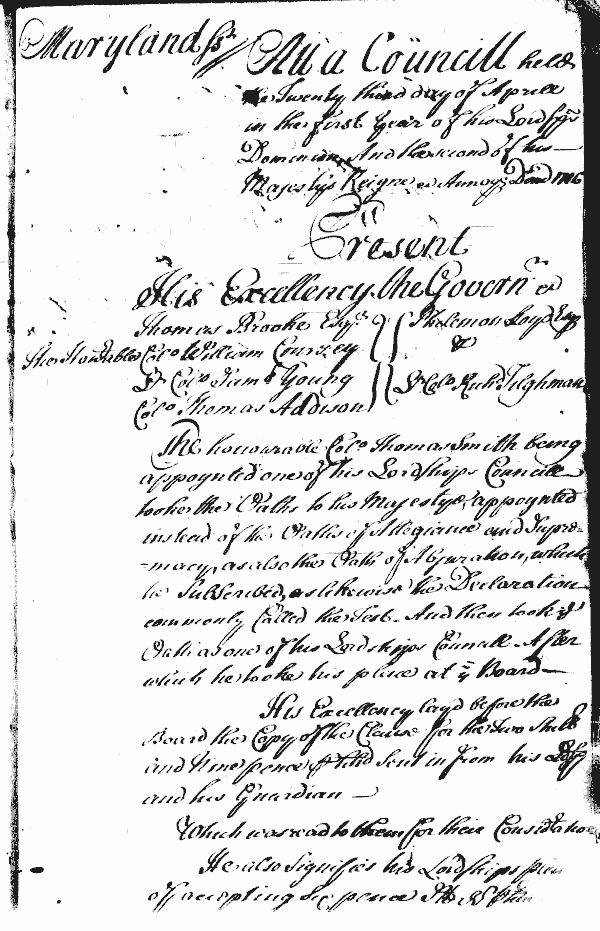 Maryland ss. At a Councill held
the Twenty third day of Aprill
in the first Year of his Lordsps
Dominion, And the second of his
Majestys Reigne Annoq Dom 1716
Present
His Excellency the Governr
Thomas Brooke Esqr Philemon Loyd Esqr
The Honrables Colo William Coursey &
Lt Colo Saml Young Lt Colo Richd Tilghman
Colo Thomas Addison
The honourable Colo Thomas Smith being
appoynted one of his Lordships Councill
tooke the Oaths to his Majestye, appoynted
instead of the Oaths of Allegiance and Supre-
-macy, as also the Oath of Abjuration, which
he Subscribed, as likewise the Declaration
commonly Called the Test. And then took ye
Oath as one of his Lordships Councill After
which he tooke his place at ye Board
His Excellency layd before the
Board the Copy of the Clause for the two Shill
and Nine pence Hhd sent in from his
and his Guardian
Which was read to them for their Consideration
He also Signifies his Lordships
of accepting six pence